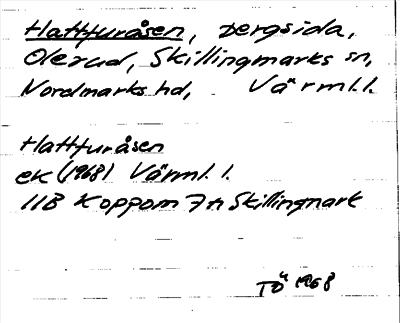 Hattfuråsen, bergsida,
Olerud, Skillingmarks sn,
Nordmarks hd, Värml. l.
Hattfuråsen
ek (1968) Värml. l.
11B Koppom 7n Skillingmark
TÖ 1968